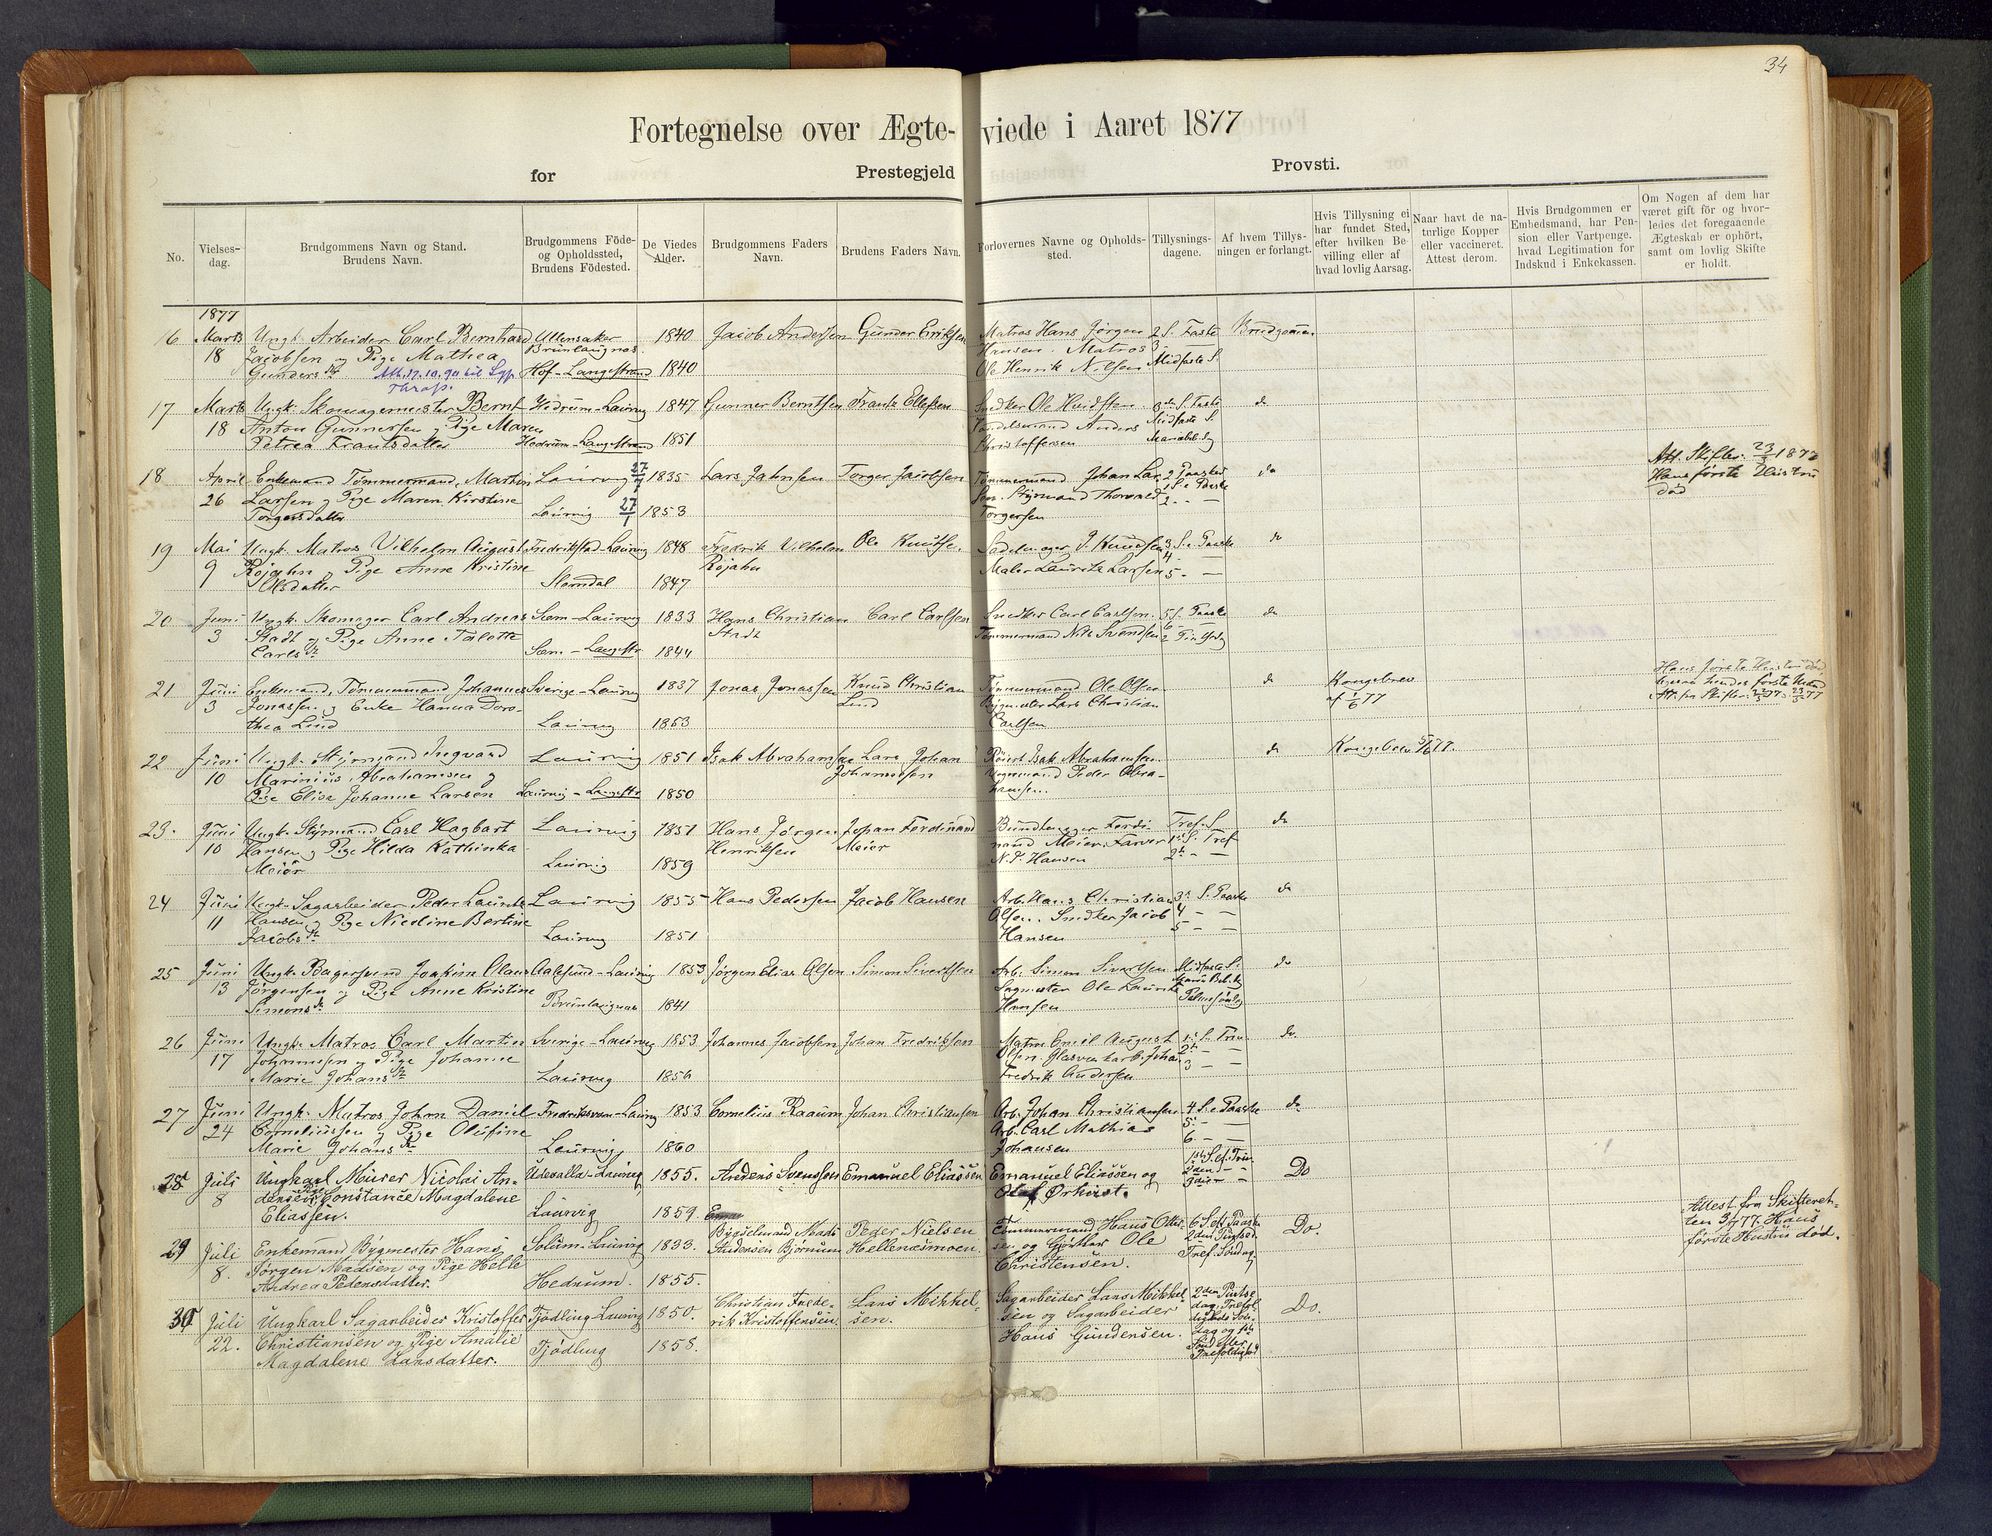 34
Fortegnelse over Ægte- viede i Aaret 1877
for Prestegjeld Provsti.
No.
Vielses-
dag.
Brudgommens Navn og Stand.
Brudens Navn.
Brudgommens Föde-
og Opholdssted,
Brudens Födested.
De Viedes
Alder.
Brudgommens Faders
Navn.
Brudens Faders Navn.
Forlovernes Navne og Opholds-
sted.
Tillysnings-
dagene.
Af hvem Tillys-
ningen er forlangt.
Hvis Tillysning ei
har fundet Sted,
efter hvilken Be-
villing eller af
hvad lovlig Aarsag.
Naar havt de na-
turlige Kopper
eller vaccineret.
Attest derom.
Hvis Brudgommen er
Embedsmand, har Pen-
sion eller Vartpenge.
hvad Legitimation for
Indskud i Enkekassen.
Om Nogen af dem har
været gift för og hvor-
ledes det foregaaende
Ægteskab er ophört,
samt om lovlig Skifte
er holdt.
1877
16 Marts Ungk. Arbeider Carl Bernhard Ullensaker 1840 Jacob Anderssen Gunder Eriksen Matros Hans Jörgen 2 S. Faste Brudgommen
18 Jacobsen og Pige Mathea Brunlaugnæs Hansen. Matros 3
Gundersdt Hof - Langestrand 1840 Ole Henrik Nilsen Midfaste S.
17 Marts Ungk. Skomagermester Bernt Hedrum-Laurvig 1847 Gunner Berntsen Frants Ellefsen Snedker Ole 3die S. Faste do
18 Anton Gunnersen og Pige Maren Anders Midfaste S.
Petrea Frantsdatter Hedrum-Langestrand 1851 Christoffersen
18 April Enkemand Tömmermand, Martin Laurvig 27/7 1835 Lars Torger Tömmermand Johan Lar- 2 Paaske do Att. Skifter. 23/3 1877
26 Larsen og Pige Maren Kirstine sen. Styrmand Thorvald Hans første Hustru
Torgersdatter Laurvig 27/1 1853 Torgersen død
19 Mai Ungk. Matros Vilhelm August Fredrikstad-Laurvig 1848 Fredrik Vilhelm Ole Knutse. Knudsen 3 S. e Paaske do
9 Rojahn og Pige Anne Kristine Rojahn Maler Laurits Larsen 4
Olsdatter 1847 5. —
20 Juni Ungk. Skomager Carl Andreas Sem-Laurvig 1833 Hans Christian Carl Carlsen Snedker Carl Carlsen. 5 S. Paaske do
3 Stadt og Pige Anne Stadt Tömmermand Nils Svendsen 6 -
Carlsdt Sem - Langestr 1844
21 Juni Enkemand, Tömmermand Johannes Sverige-Laurvig 1837 Jonas Jonassen Knud Christian Tömmermand Ole Olsen do Kongebrev Hans første Hustru død
3 Jonassen og Enke Hanna Doro- Lind Bygmester Lars Christian af 1/6 77
thea Lind Laurvig 1853 Carlsen
22 Juni Ungk. Styrmand Ingvard Laurvig 1851 Isak Abrahamsen Lars Johan Isak Abrahamsen do Kongebrev 5/6 77.
10 Marinius Abrahamsen og Johannesen Peder Abra-
Pige Elise Johanne Larsen Laurvig-Langestr 1850 hamsen.
23. Juni Ungk. Styrmand Carl Hagbart Laurvig 1851 Hans Jörgen Johan Ferdinand Ferdi- Tref. S. do
10 Hansen og Pige Hilda Kathinka Henriksen Meier nand Meier. Farver 1st S. Tref
Meiör Laurvig 1859 N. P. Hansen 2 - —
24 Juni Ungk. Sagarbeider Peder Laurits Laurvig 1855 Hans Pedersen Jacob Hansen Arb. Hans Christian 3 S. Paaske do
11 Hansen og Pige Nicoline Bertine Olsen. Snedker Jacob 4 - —
Jacobsdt Laurvig 1851 Hansen 5 - —
25 Juni Ungk. Bagersvend Joakim Olaus Aalesund-Laurvig 1853 Jörgen Elias Olsen Simon Sivertsen Arb. Simon Sivertsen Midfaste S. do
13 Jörgensen og Pige Anne Kristine Sagmester Ole Laurits
Simonsdt Brunlaugnæs 1841 Hansen Palmesöndag
26 Juni Ungk. Matros Carl Martin Sverige-Laurvig 1853 Johannes Jacobsen Johan Fredriksen Matros Emil August 1st S. Trin. do
17 Johannesen og Pige Johanne Olsen. Glasværkarb. Johan 2 - —
Marie Johansdt Laurvig 1856 Fredrik Andersen 3 - —
27 Juni Ungk. Matros John Daniel Fredriksværn-Laurvig 1853 Cornelius Raaum Johan Christiansen Arb. Johan Christiansen 4 S. e Paaske do
24 Corneliussen og Pige Olefine Arb. Carl Mathias 5 - —
Marie Johansdt Laurvig 1860 Johansen 6 - —
28 Juli Ungkarl Murer Nicolai An- Udevalla-Laurvig 1855. Andreas Svenssen Emanuel Eliassen Emanuel Eliassen og 1ste S. ef. Trin. Do
8 dersen og Pige Constance Magdalene 2den - -
Eliassen. Laurvig 1859. Olaf Ørkvist. 3die - —
29 Juli Enkemand Bygmester Hans Solum-Laurvig 1833. Bygselmand Mads Peder Nielsen Tömmermand Hans Otter- 6 S. ef. Paaske Do. Attest fra Skifteret-
8. Jørgen Madsen og Pige Helle Andersen Bjørnum Hellenæsmoen sen og Gjørtler Ole 2den Pintsed. ten 3/7 77. Hans
Andrea Pedersdatter. Hedrum. 1855. Christensen. Tref. Søndag første Hustru død.
30 Juli Ungkarl Sagarbeider Kristoffer Tjødling-Laurvig 1850. Christian Frede- Lars Mikkel- Sagarbeider Lars Mikkel- 2den Pintse Do.
22. Christiansen og Pige Amalie rik Kristoffersen. sen. sen og Sagarbeider dag. Trefol-
Magdalene Larsdatter. Tjødling 1858. Hans Gundersen. digheds Søn-
dag og 1ste
Sønd. efter
Trefoldighed